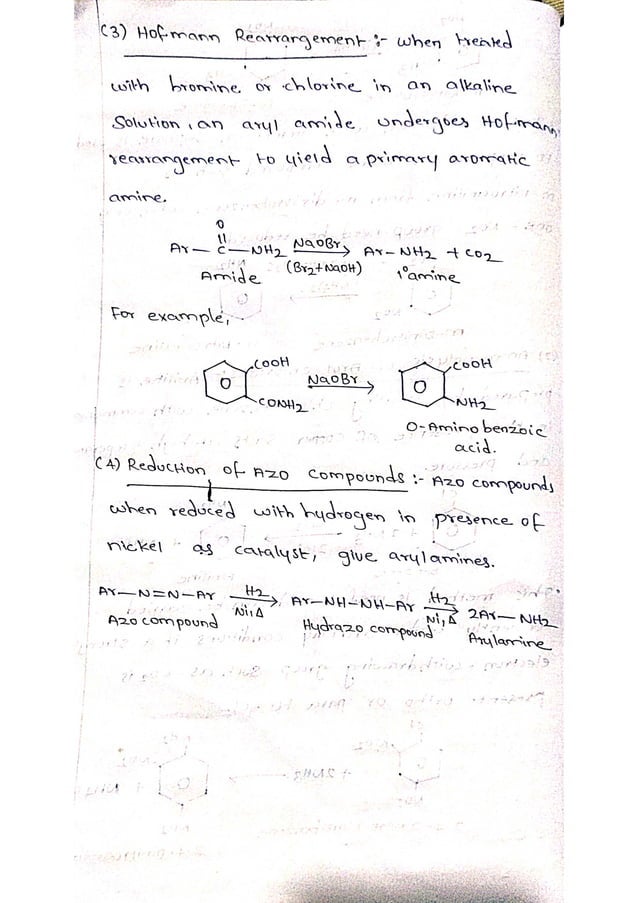 (3) Hofmann Rearrangement :- when treated
with bromine or chlorine in an alkaline
solution, an aryl amide undergoes Hofmann
rearrangement to yield a primary aromatic
amine.
O
||
Ar—C—NH2 NaOBr Ar-NH2 + CO2
Amide (Br2+NaOH) 1°amine
For example,
COOH COOH
NaOBr
CONH2 NH2
O-Amino benzoic
acid.
(4) Reduction of Azo compounds :- Azo compounds
when reduced with hydrogen in presence of
nickel as catalyst, give arylamines.
Ar—N=N—Ar H2 Ni,Δ Ar-NH-NH-Ar H2 Ni,Δ 2Ar—NH2
Azo compound Hydrazo compound Arylamine